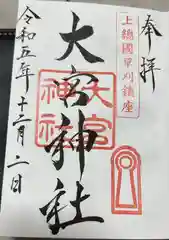 奉拝
上総國草刈鎮座
大宮神社
大宮
神社
令和五年十二月二日